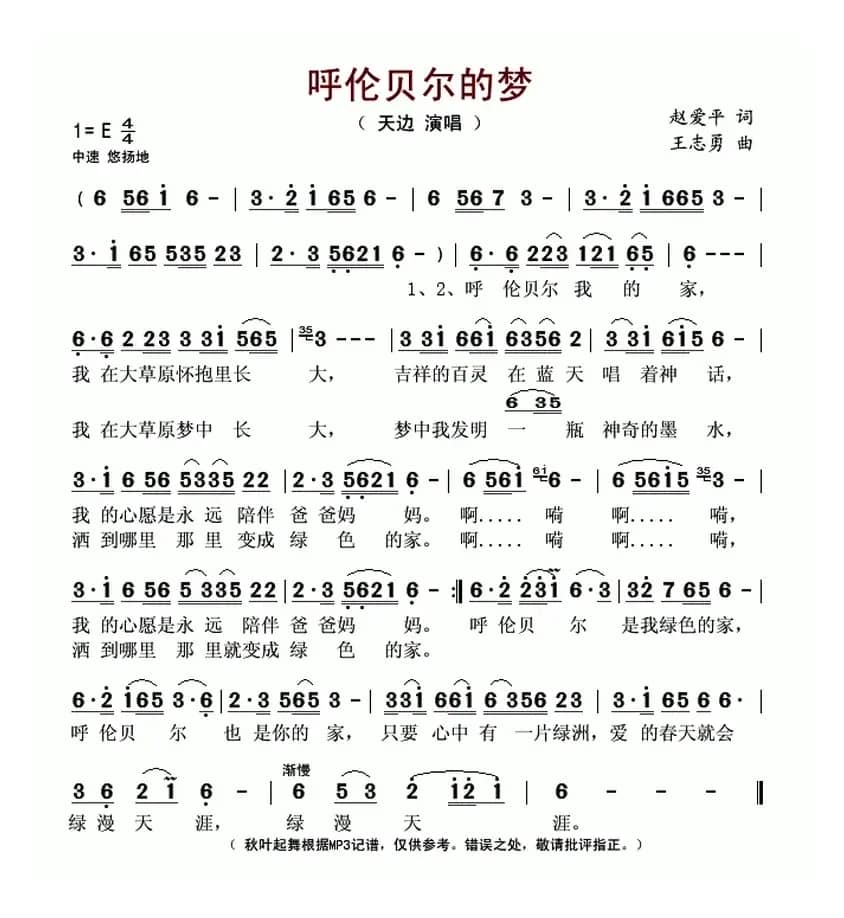 呼伦贝尔的梦
（ 天边 演唱 ）
赵爱平 词
1= E 4/4
王志勇 曲
中速 悠扬地
( 6 56 i 6 - | 3· 2 i 65 6 - | 6 56 7 3 - | 3· 2 i 665 3 - |
3· i 65 535 23 | 2· 3 5621 6 - ) | 6· 6 223 121 65 | 6 - - - |
1、2、呼 伦贝尔 我 的 家，
6·6 2 23 3 3i 565 | 35 3 - - - | 3 3i 66i 6356 2 | 3 3i 6i5 6 - |
我 在大草原怀抱里长 大， 吉祥的百灵 在 蓝 天 唱 着神 话，
6 35
我 在大草原梦中 长 大， 梦中我发明 一 瓶 神奇的墨 水，
3·i 6 56 5335 22 | 2·3 5621 6 - | 6 56i 6i 6 - | 6 56i5 35 3 - |
我 的心愿是永 远 陪伴 爸 爸妈 妈。 啊..... 嗬 啊..... 嗬，
洒 到哪里 那 里 变成 绿 色 的家。 啊..... 嗬 啊..... 嗬，
3·i 6 56 5 335 22 | 2·3 5621 6 - :‖ 6·2 23i 6·3 | 32 7 65 6 - |
我 的心愿是永 远 陪伴 爸 爸妈 妈。 呼 伦贝 尔 是我绿色的家，
洒 到哪里 那 里就变成 绿 色 的家。
6·2 i65 3·6 | 2·3 565 3 - | 33i 66i 6 356 23 | 3·i 65 6 6· |
呼 伦贝 尔 也 是你的 家， 只要 心中 有 一片绿洲，爱 的春天就会
渐慢
3 6 2 i 6 - | 6 5 3 2 i2 i | 6 - - - ‖
绿 漫 天 涯， 绿 漫 天 涯。
（ 秋叶起舞根据MP3记谱，仅供参考。错误之处，敬请批评指正。）